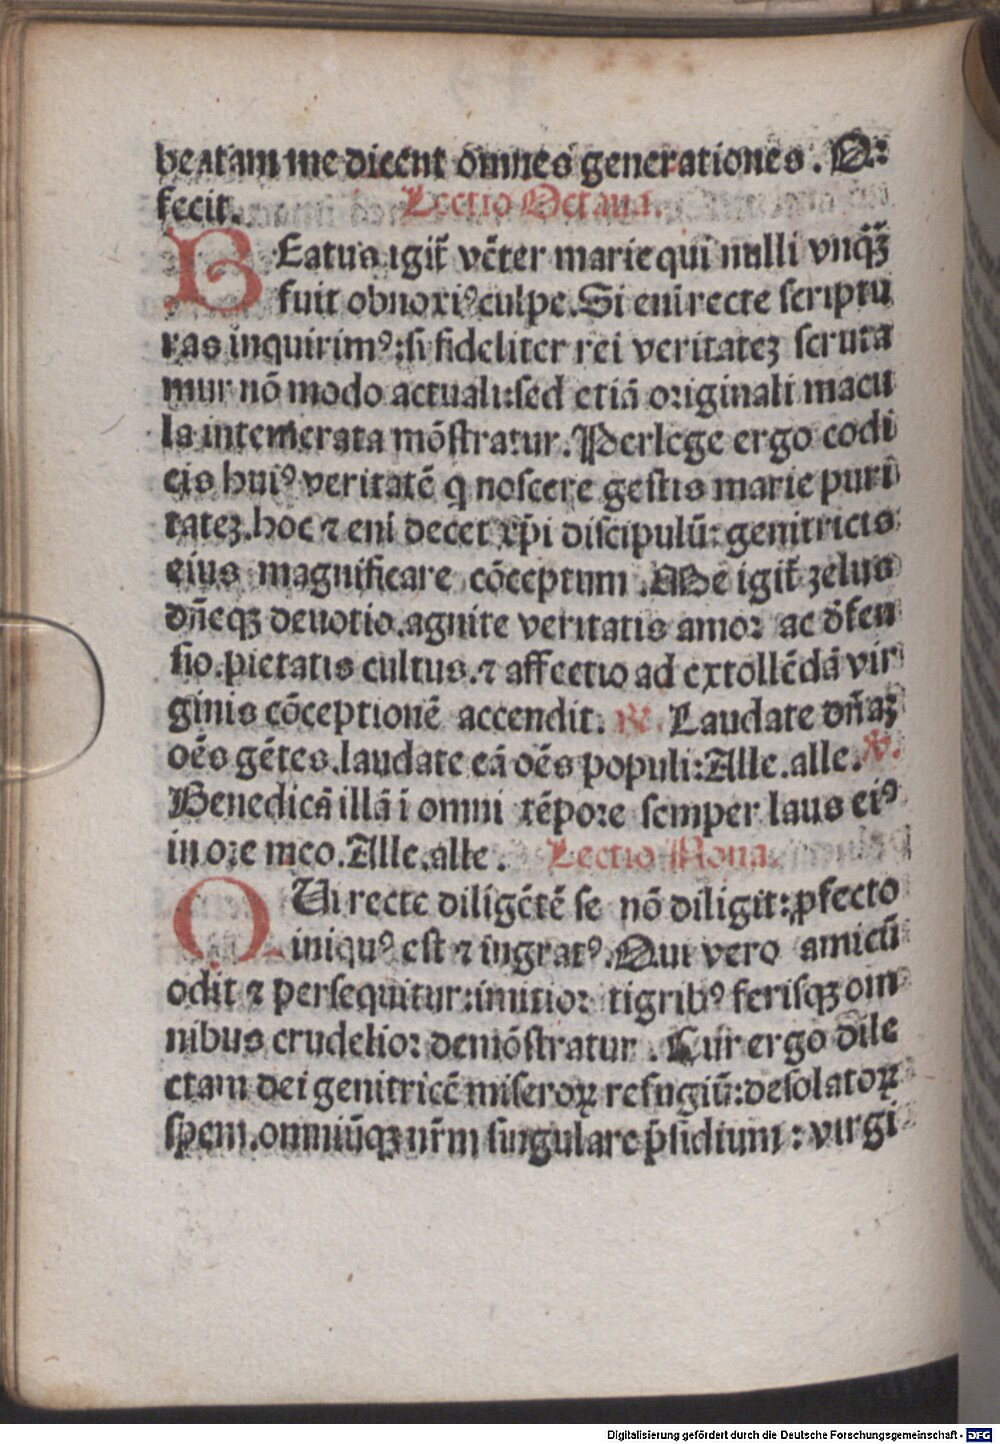 beatam me dicent omnes generationes. Q:
fecit. Lectio Octaua.
BEatus igit̃ vẽter marie qui nulli vnq̃ꝫ
fuit obnoxiꝰ culpe. Si eni recte scriptu
ras inquirimꝰ: si fideliter rei veritateꝫ scruta
mur nõ modo actuali: sed etiã originali macu
la intemerata mõstratur. Perlege ergo codi
cis huiꝰ veritatẽ q noscere gestis marie puri
tateꝫ. hoc ⁊ eni decet xp̃i discipulũ: genitricis
eius magnificare cõceptum. Me igit̃ zelus
dñeqꝫ deuotio. agnite veritatis amor ac defen
sio. pietatis cultus. ⁊ affectio ad extollẽdã vir
ginis cõceptionẽ accendit. ℟. Laudate dñaꝫ
oẽs gẽtes. laudate eã oẽs populi: Alle. alle. ℣.
Benedicã illã i omni tẽpore semper laus eiꝰ
in ore meo. Alle. alle. Lectio Nona.
QUi recte diligẽtẽ se nõ diligit: ꝓfecto
iniquꝰ est ⁊ ingratꝰ. Qui vero amicũ
odit ⁊ persequitur: inmitior tigribꝰ ferisqꝫ om
nibus crudelior demõstratur. Cur ergo dile
ctam dei genitricẽ miseroꝝ refugiũ: desolatoꝝ
spem. omniũqꝫ nr̃m singulare p̃sidium: virgi
Digitalisierung gefördert durch die Deutsche Forschungsgemeinschaft - DFG